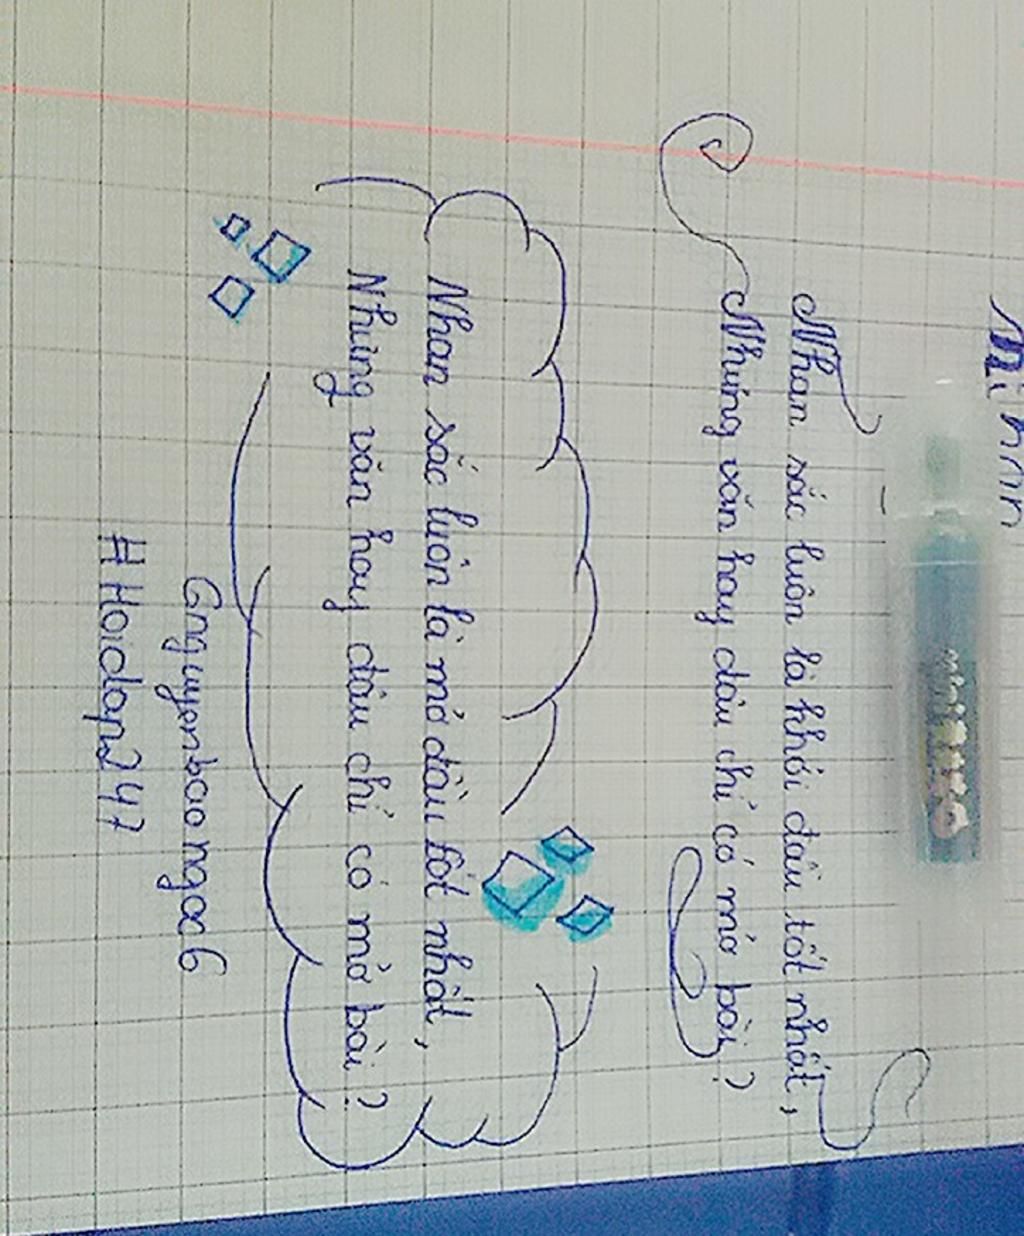 Nhan sắc luôn là khởi đầu tốt nhất,
Nhưng văn hay đâu chỉ có mở bài?
Nhan sắc luôn là mở đầu tốt nhất,
Nhưng văn hay đâu chỉ có mở bài?
Gnguyenbaongoc6
#Hoidap247